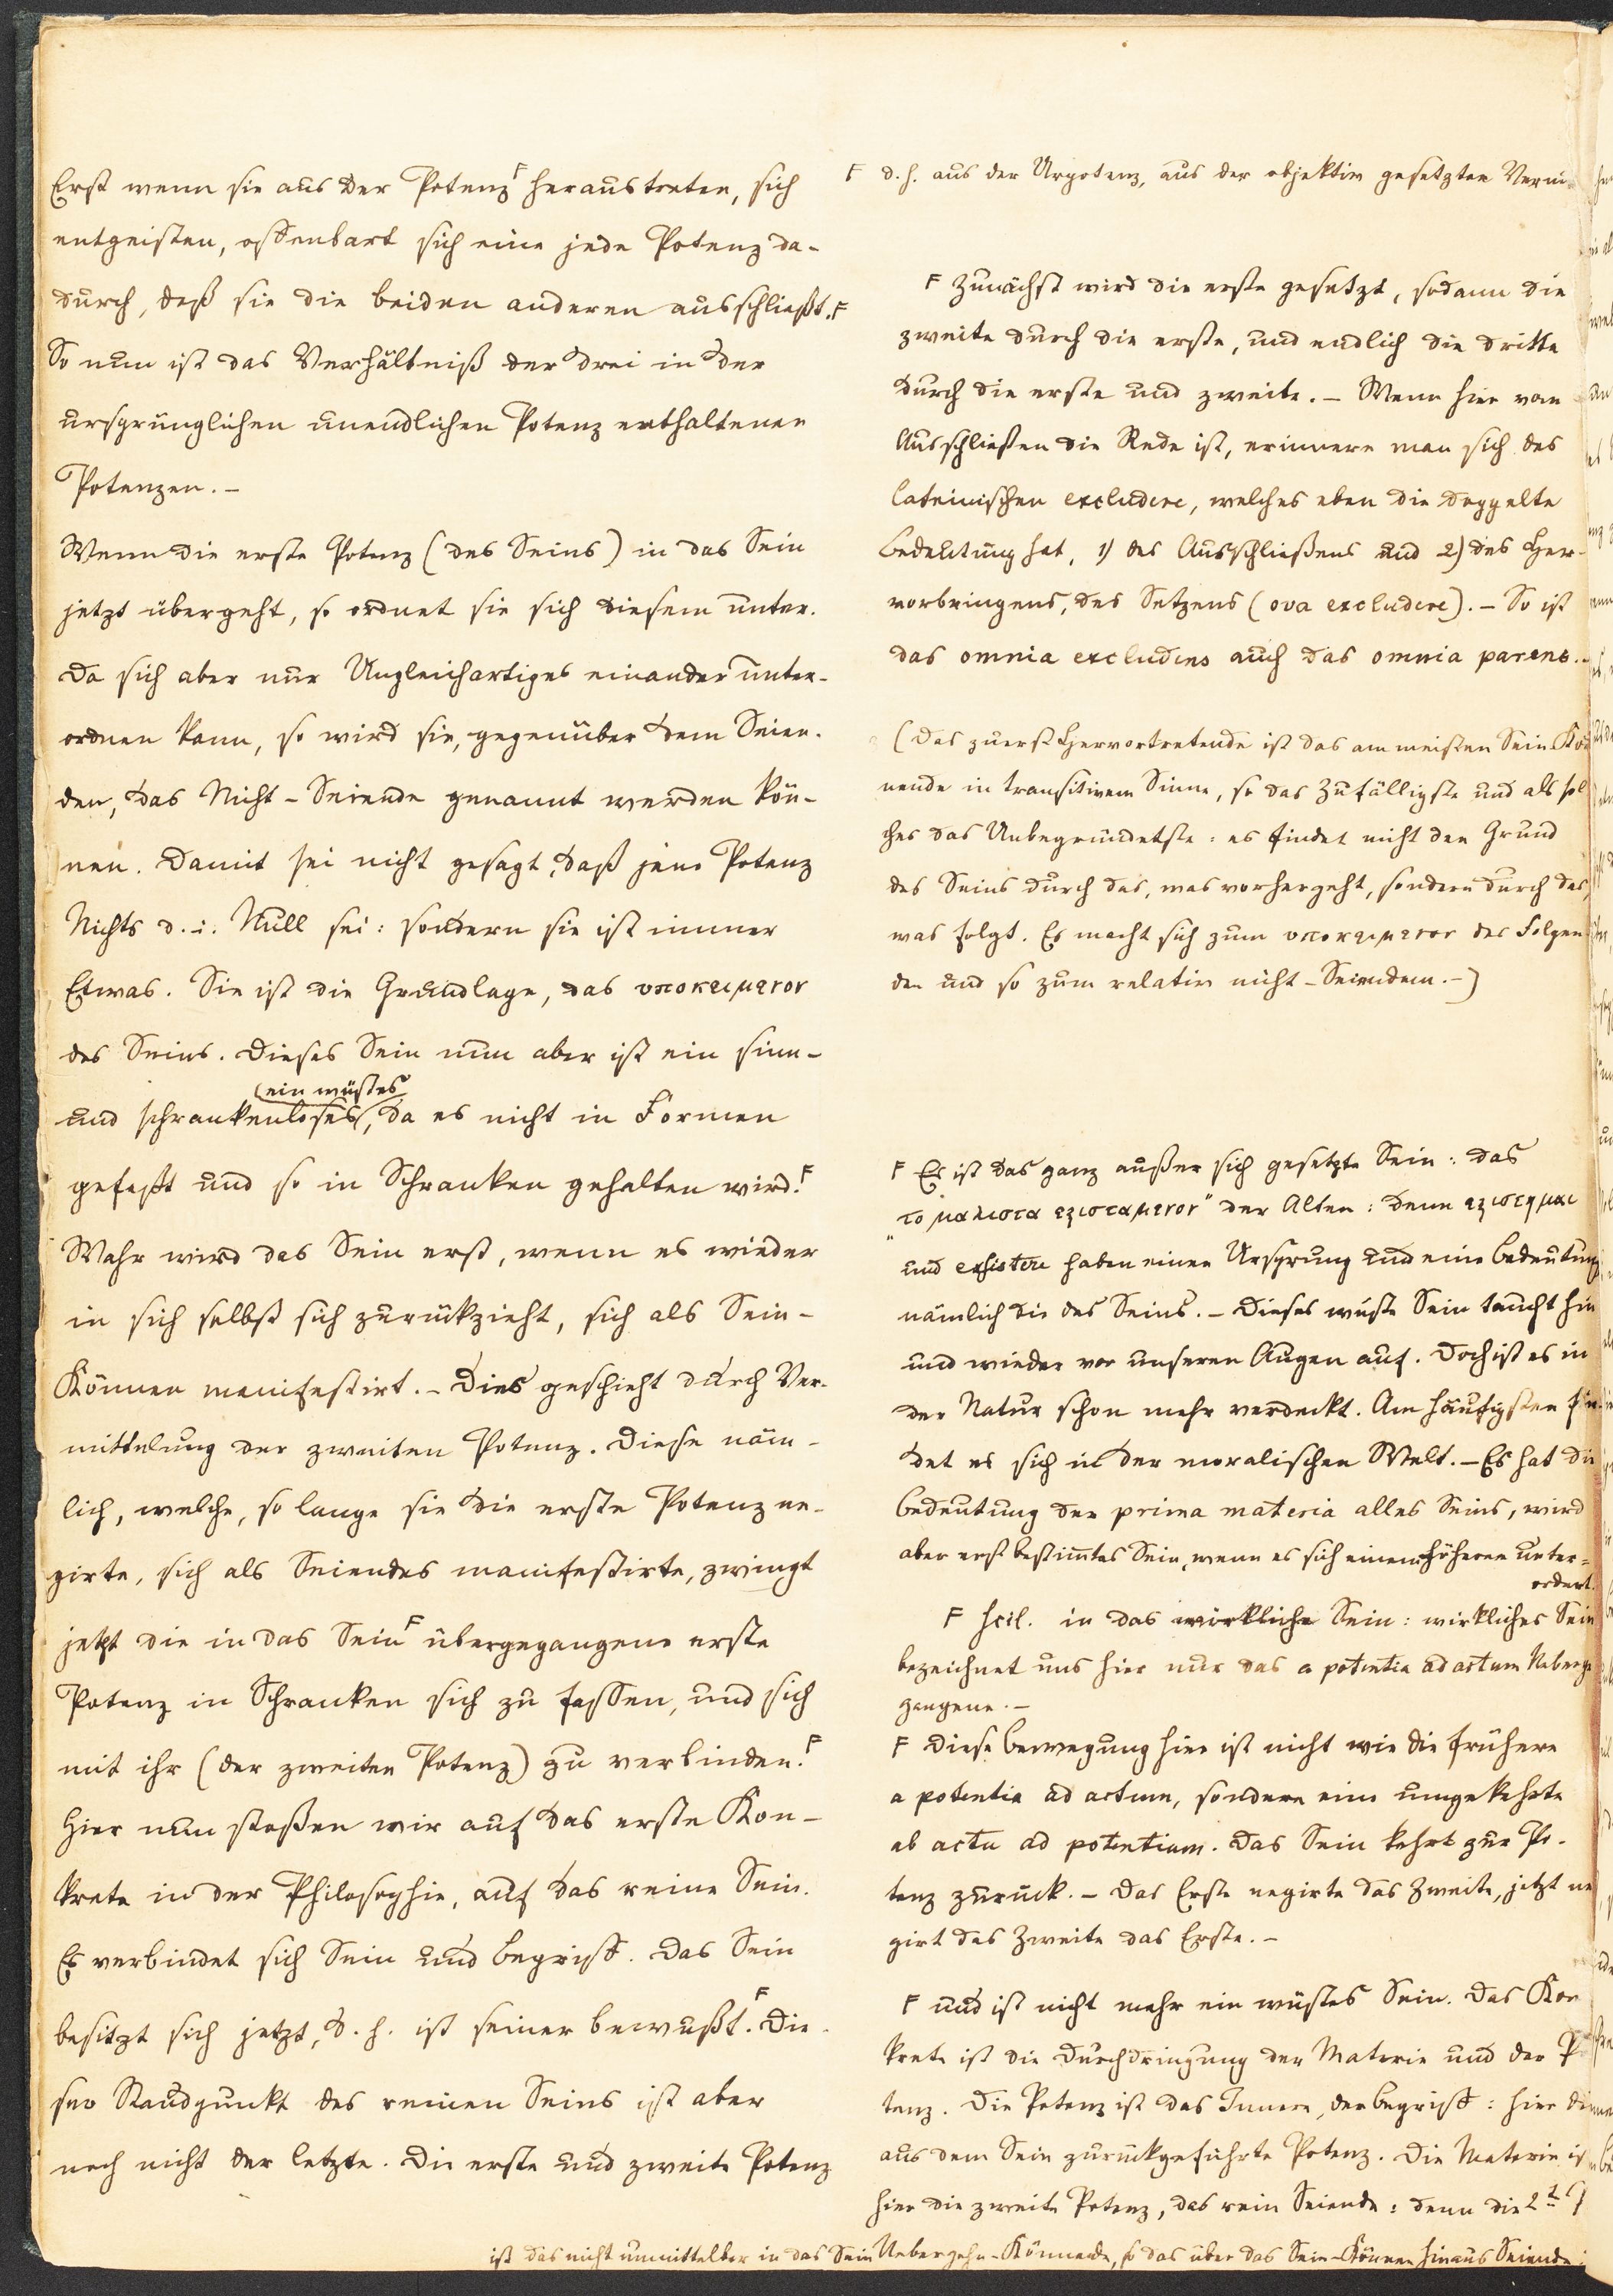 Erst wenn sie aus der Potenz F heraustreten, sich
entgeisten, offenbart sich eine jede Potenz da-
durch, daß sie die beiden anderen ausschließt. F
So nun ist das Verhältniß der drei in der
ursprünglichen unendlichen Potenz enthaltenen
Potenzen. –
Wenn die erste Potenz (des Seins) in das Sein
jetzt übergeht, so ordnet sie sich diesem unter.
Da sich aber nur Ungleichartiges einander unter-
ordnen kann, so wird sie, gegenüber dem Seien-
den, das Nicht-Seiende genannt werden kön-
nen. Damit sei nicht gesagt, daß jene Potenz
Nichts d. i. Null sei: sondern sie ist immer
Etwas. Sie ist die Grundlage, das υποκειμενον
des Seins. Dieses Sein nun aber ist ein sinn-
(ein wüstes
und schrankenloses, da es nicht in Formen
gefaßt und so in Schranken gehalten wird. F
Wahr wird das Sein erst, wenn es wieder
in sich selbst sich zurückzieht, sich als Sein-
Können manifestirt. – Dies geschieht durch Ver-
mittelung der zweiten Potenz. Diese näm-
lich, welche, so lange sie die erste Potenz ne-
girte, sich als Seiendes manifestirte, zwingt
jetzt die in das Sein F übergegangene erste
Potenz in Schranken sich zu fassen, und sich
mit ihr (der zweiten Potenz) zu verbinden. F
Hier nun stoßen wir auf das erste Kon-
krete in der Philosophie, auf das reine Sein.
Es verbindet sich Sein und Begriff. Das Sein
besitzt sich jetzt, d. h. ist seiner bewußt. F Die-
ser Standpunkt des reinen Seins ist aber
noch nicht der letzte. Die erste und zweite Potenz
F d. h. aus der Urpotenz, aus der objektiv gesetzten
F Zunächst wird die erste gesetzt, sodann die
zweite durch die erste, und endlich die dritte
durch die erste und zweite. – Wenn hier vom
Ausschließen die Rede ist, erinnere man sich des
lateinischen excludere, welches eben die doppelte
Bedeutung hat, 1) des Ausschließens und 2) des Her-
vorbringens, des Setzens (ova excludere). – So ist
das omnia excludens auch das omnia parens. –
(Das zuerst Hervortretende ist das am meisten Sein-Kön
nende in transitivem Sinne, so das Zufälligste und als sol
ches das Unbegründetste: es findet nicht den Grund
des Seins durch das, was vorhergeht, sondern durch das,
was folgt. Es macht sich zum υποκειμενον des Folgen
den und so zum relativ nicht-Seiendem. –)
F Es ist das ganz außer sich gesetzte Sein: das
„το μαλιστα εξισταμενον" der Alten: denn εξιστημαι
und exsistere haben einen Ursprung und eine Bedeutung
nämlich die des Seins. – Dieses wüste Sein taucht hin
und wieder vor unseren Augen auf. Doch ist es in
der Natur schon mehr verdeckt. Am häufigsten fin-
det es sich in der moralischen Welt. – Es hat die
Bedeutung der prima materia alles Seins, wird
aber erst bestimmtes Sein, wenn es sich einem Höheren unter-
ordnet.
F scil. in das wirkliche Sein: wirkliches Sein
bezeichnet uns hier nur das a potentia ad actum Ueberge
gangene. –
F Diese Bewegung hier ist nicht wie die frühere
a potentia ad actum, sondern eine umgekehrte
ab actu ad potentiam. Das Sein kehrt zur Po-
tenz zurück. – Das Erste negirte das Zweite, jetzt ne
girt das Zweite das Erste. –
F und ist nicht mehr ein wüstes Sein. Das Kon
krete ist die Durchdringung der Materie und der P
tenz. Die Potenz ist das Innere, der Begriff: hier die
aus dem Sein zurückgeführte Potenz. Die Materie is
hier die zweite Potenz, das rein Seiende: denn die 2t
ist das nicht unmittelbar in das Sein Uebergehn-Könnende, so das über das Sein-Können hinaus Seiende